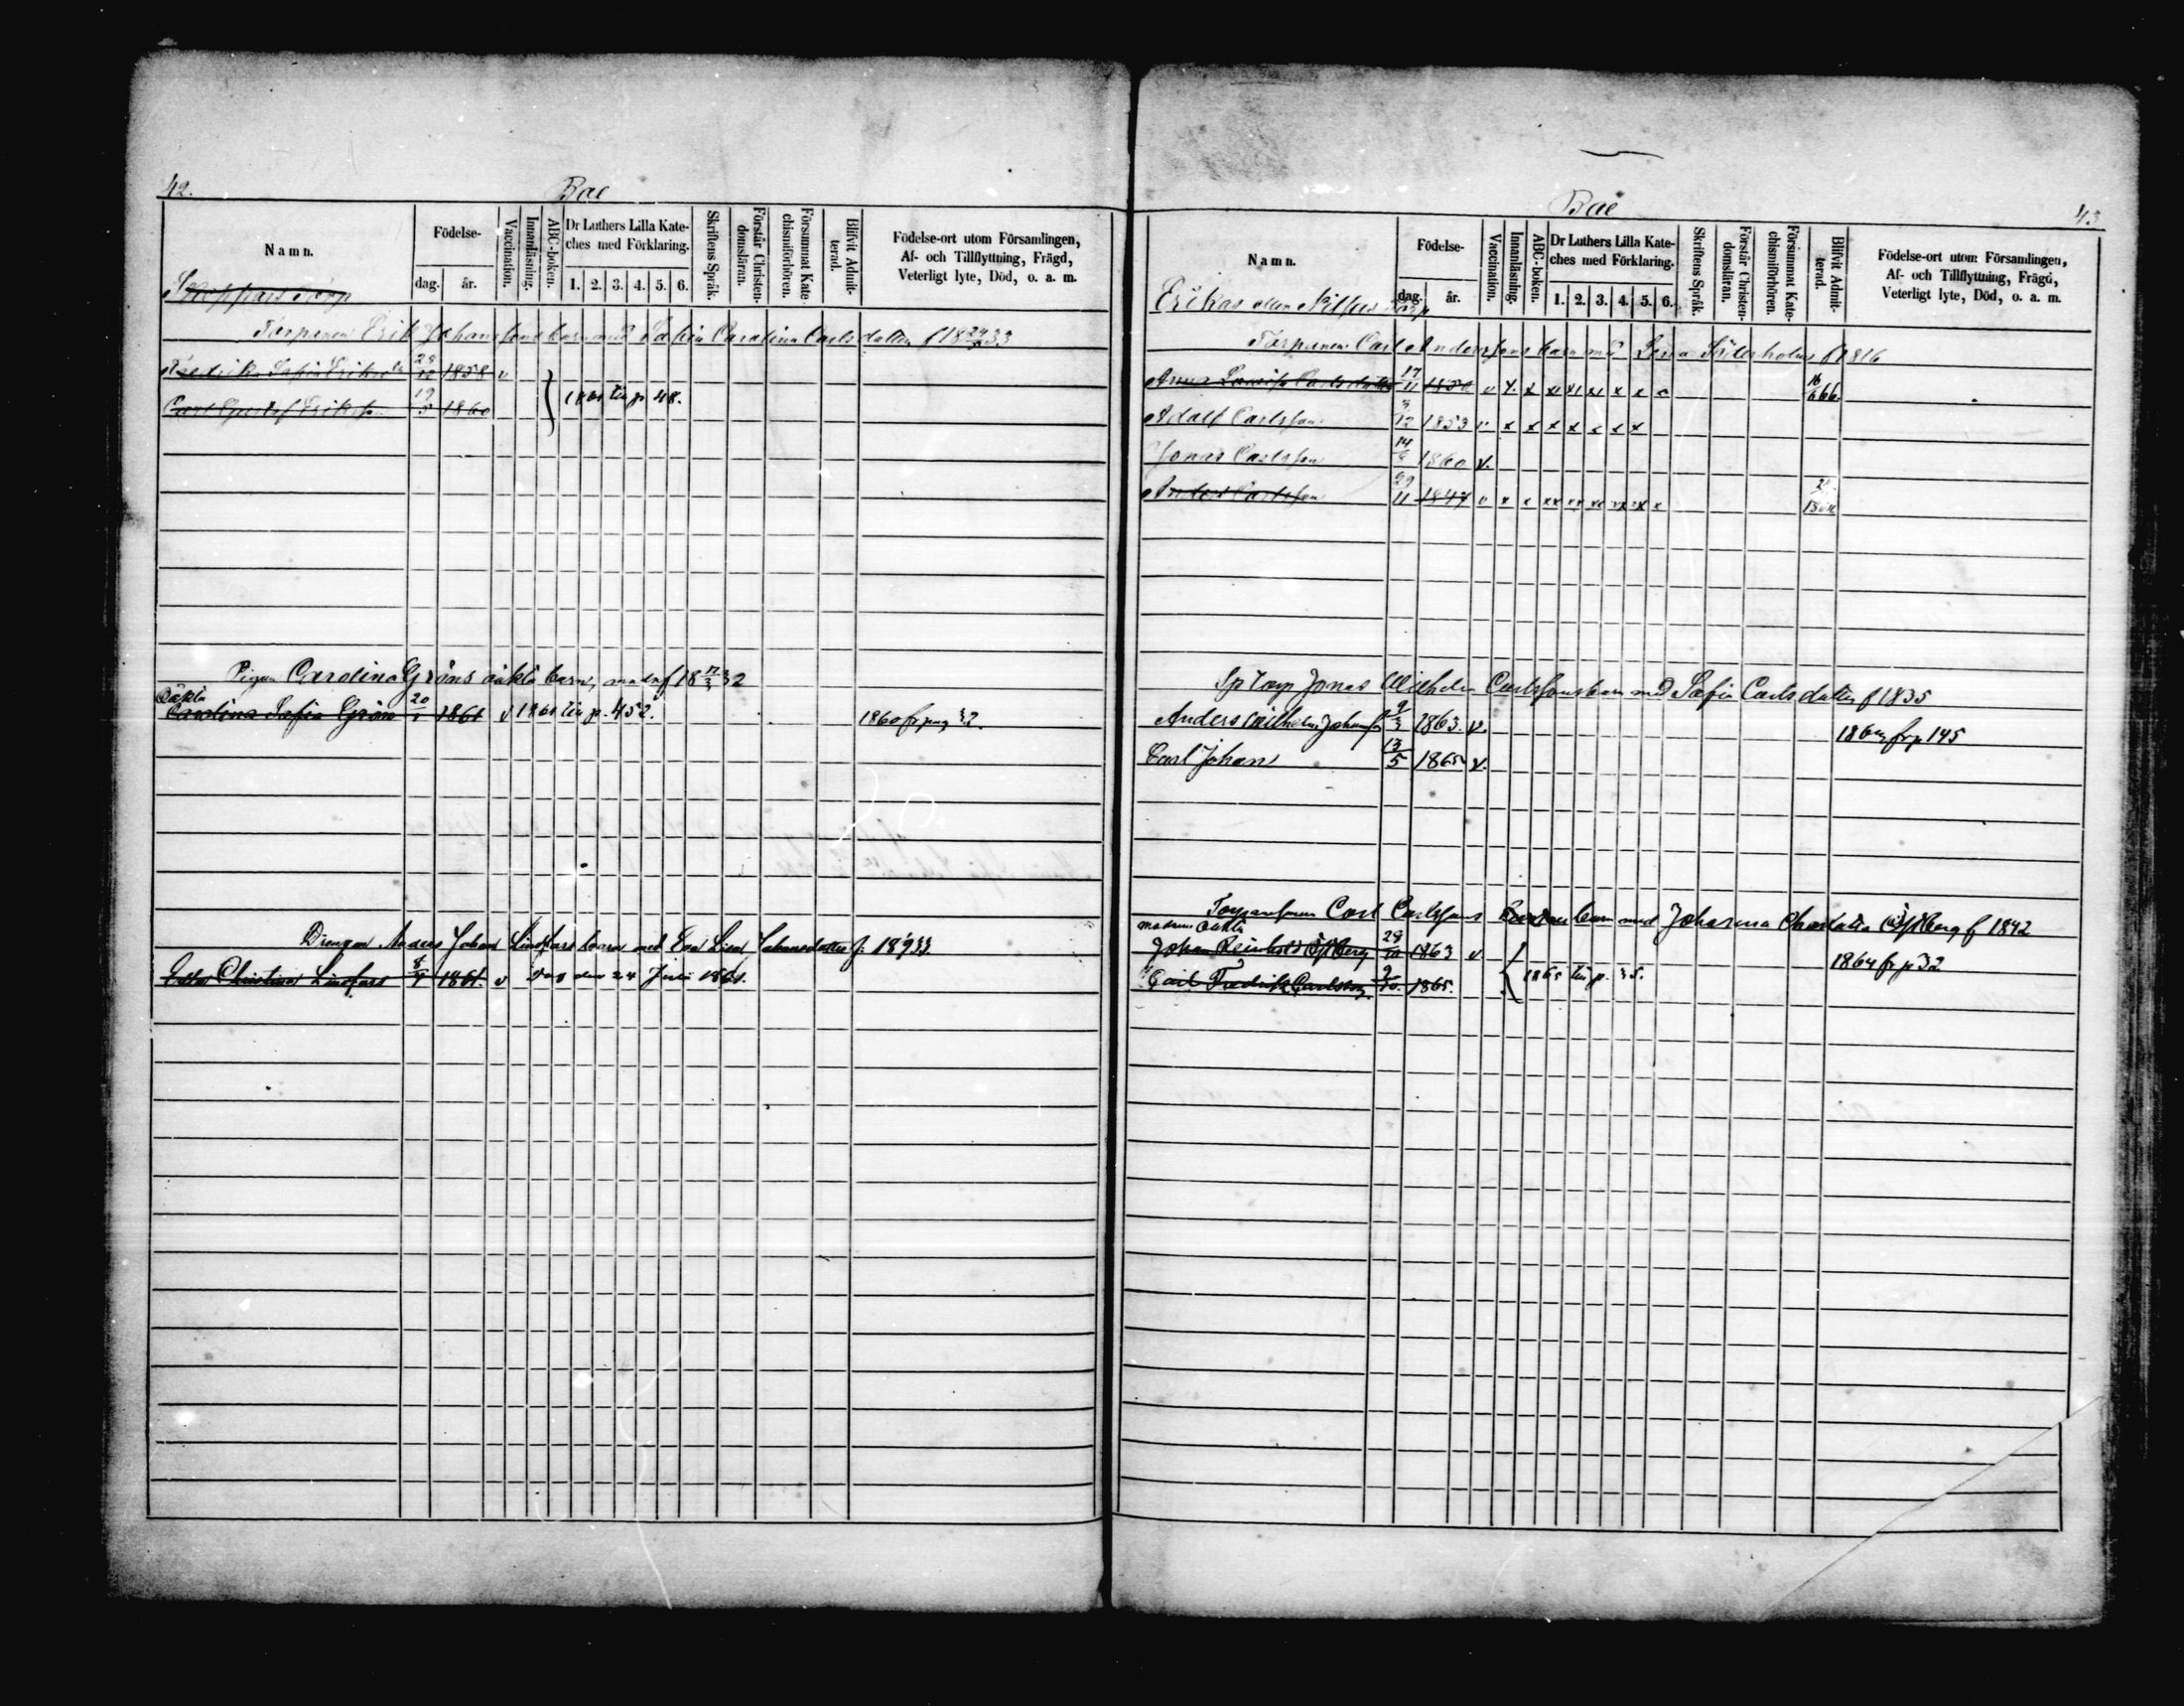 42.
Bae
Namn.
Födelse-
dag. år.
Vaccination.
Innanläsning.
ABC-boken.
Dr Luthers Lilla Kate-
ches med Förklaring.
1. 2. 3. 4. 5. 6.
Skriftens Språk.
Förstår Christen-
domsläran.
Försummat Kate-
chismiförhören.
Blifvit Admit-
terad.
Födelse-ort utom Församlingen,
Af- och Tillflyttning, Frägd,
Veterligt lyte, Död, o. a. m.
Torparen Erik Johanssons barn med Sofia Carolina Carlsdotter f 18 33
Fredrika Sofia 1858 v
Carl Gustaf Eriksson 19/5 1860 1861 till p 48.
Pigan Carolina Gröns oäkta barn, modren f 18 17/3 32
Oäkta
Carolina Sofia Grön 20/1 1861 v 1861 till p. 452. 1860 fr pag 32.
Drengen Anders Johan Lindfors barn med Eva Lisa Johansdotter f. 18 33
Christina Lindfors 8/4 1861. v Död den 24 Juli 1861.
Bae
43
Namn.
Födelse-
dag. år.
Vaccination.
Innanläsning.
ABC-boken.
Dr Luthers Lilla Kate-
ches med Förklaring.
1. 2. 3. 4. 5. 6.
Skriftens Språk.
Förstår Christen-
domsläran.
Försummat Kate-
chismiförhören.
Blifvit Admit-
terad.
Födelse-ort utom Församlingen,
Af- och Tillflyttning, Frägd,
Veterligt lyte, Död, o. a. m.
Erikas eller torp
Torparen Carl Anderssons barn med Söderholm f 1816
Anna Lovisa Carlsdotter 17/11 1850 v x x x x x x x x
Adolf Carlsson 3/12 1853 v x x x x x x x
Jonas Carlsson 14/8 1860 v.
Anders Carlsson 29/11 1847 v x x xx xx xx xx xx x
Sp Torp Jonas Wilhelm Carlssons barn med Sofia Carlsdotter f 1835
Anders Wilhelm 9/3 1863. v. fr p 145
Carl Johan 13/5 1865 v.
Carl Carlssons barn med Johanna Charlotta Östberg f 1842
modrens oäkta
Johan Reinhold Östberg 28/10 1863 v 1864 fr p 32
Carl Fredrik Carlsson 9/10. 1865. 1865 till p. 35.